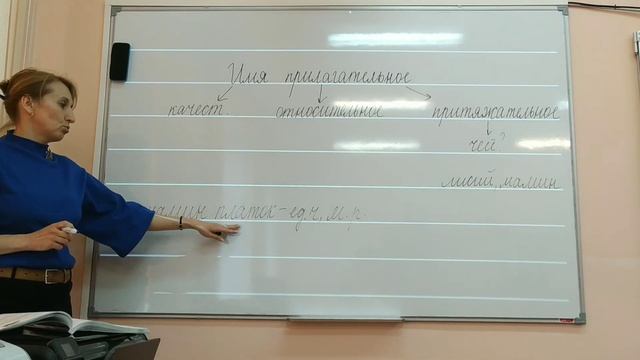 Имя прилагательное
качест. относительное притяжательное
чей?
лисий, мамин
мамин платок - ед.ч, м. р.